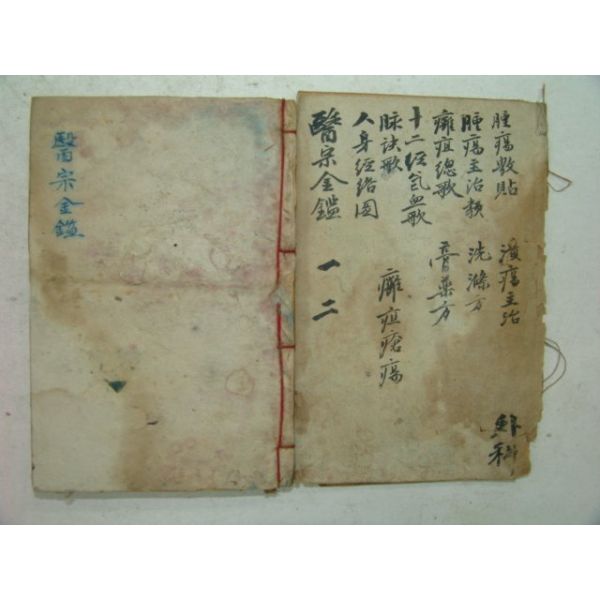 腫瘍敷貼
潰瘍主治
腫瘍主治類
洗滌方
癰疽總歌
膏藥方
十二經氣血歌
脉訣歌
癰疽瘡瘍
人身經絡图
醫宗金鑑 一二
外科
醫宗金鑑